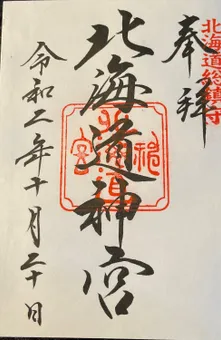 北海道総鎮守
奉拝
北海道神宮
北海道神宮
令和二年十月二十日